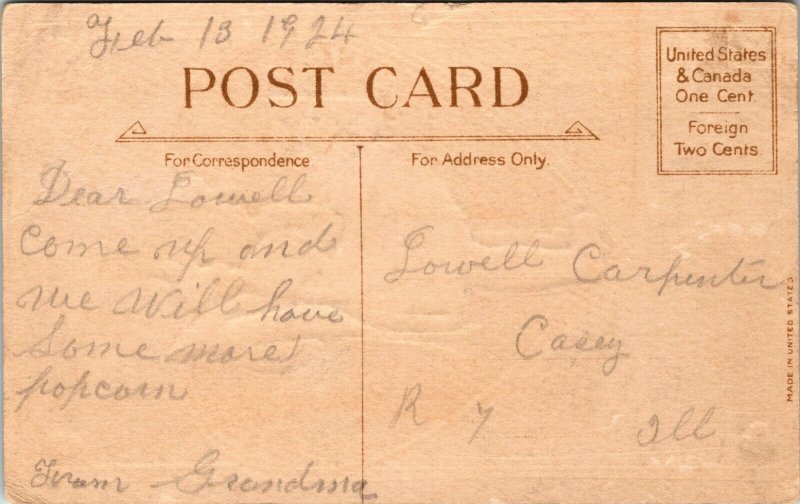 Feb 13 1924
POST CARD
United States
& Canada
One Cent.
Foreign
Two Cents
For Correspondence
For Address Only.
Dear Lowell
Come up and
we will have
some more
popcorn
From Grandma
Lowell Carpenter
Casey
R 7 Ill
MADE IN UNITED STATES